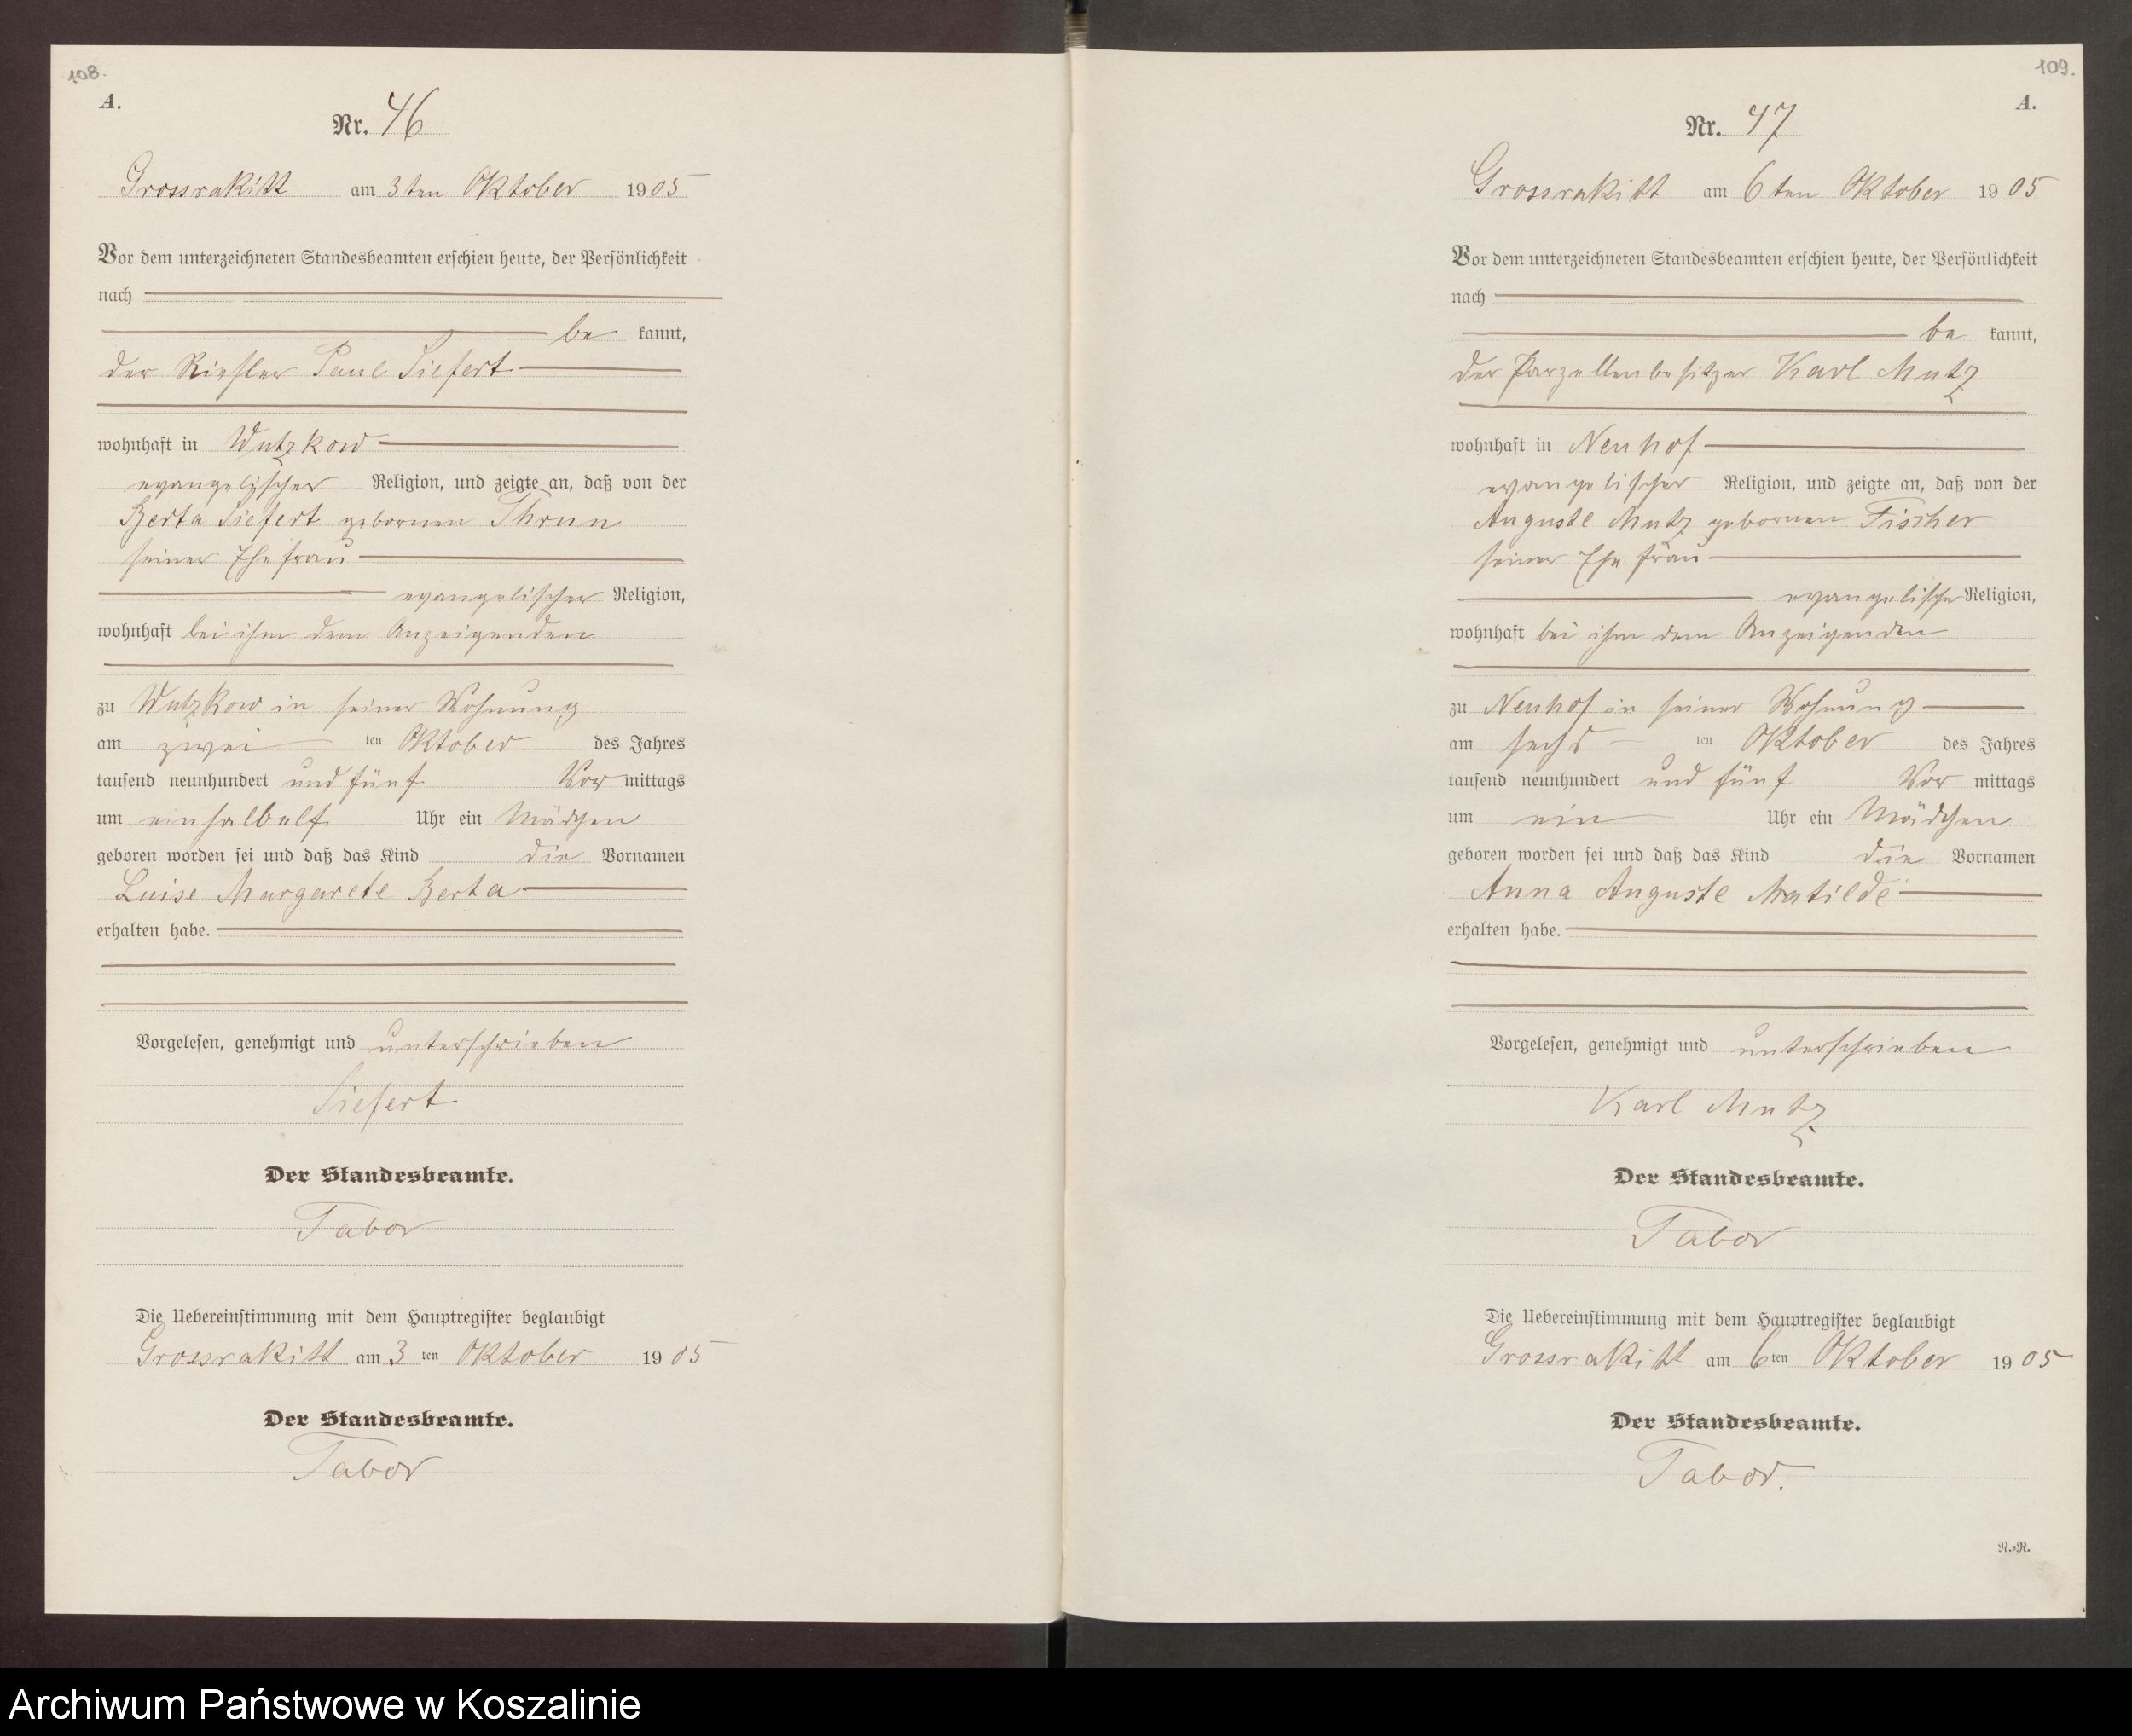 108.
A.
Nr. 46
Grossrakitt am 3ten Oktober 1905
Vor dem unterzeichneten Standesbeamten erschien heute, der Persönlichkeit
nach
be kannt,
der Paul Siefert
wohnhaft in Wutzkow
evangelischer Religion, und zeigte an, daß von der
Berta Siefert gebornen Thrun
seiner Ehefrau
evangelischer Religion,
wohnhaft bei ihm dem Anzeigenden
zu Wutzkow in seiner Wohnung
am zwei ten Oktober des Jahres
tausend neunhundert und fünf Vor mittags
um einhalbelf Uhr ein Mädchen
geboren worden sei und daß das Kind die Vornamen
Luise Margarete Berta
erhalten habe.
Vorgelesen, genehmigt und unterschrieben
Siefert
Der Standesbeamte.
Tabor
Die Uebereinstimmung mit dem Hauptregister beglaubigt
Grossrakitt am 3 ten Oktober 1905
Der Standesbeamte.
Tabor
109.
A.
Nr. 47
Grossrakitt am 6ten Oktober 1905
Vor dem unterzeichneten Standesbeamten erschien heute, der Persönlichkeit
nach
be kannt,
der Parzellenbesitzer Karl Mutz
wohnhaft in Neuhof
evangelischer Religion, und zeigte an, daß von der
Auguste Mutz gebornen Fischer
seiner Ehefrau
evangelischer Religion,
wohnhaft bei ihm dem Anzeigenden
zu Neuhof in seiner Wohnung
am sechs ten Oktober des Jahres
tausend neunhundert und fünf Vor mittags
um ein Uhr ein Mädchen
geboren worden sei und daß das Kind die Vornamen
Anna Auguste Matilde
erhalten habe.
Vorgelesen, genehmigt und unterschrieben
Karl Mutz
Der Standesbeamte.
Tabor
Die Uebereinstimmung mit dem Hauptregister beglaubigt
Grossrakitt am 6ten Oktober 1905
Der Standesbeamte.
Tabor.
N.=R.
Archiwum Państwowe w Koszalinie